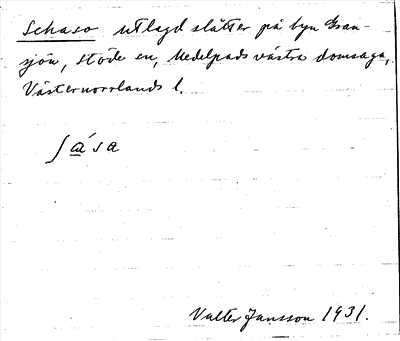 Schaso utlagd slåtter på byn Gran-
sjön, Stöde sn, Medelpads västra domsaga,
Västernorrlands l.
ʃása
Valter Jansson 1931.